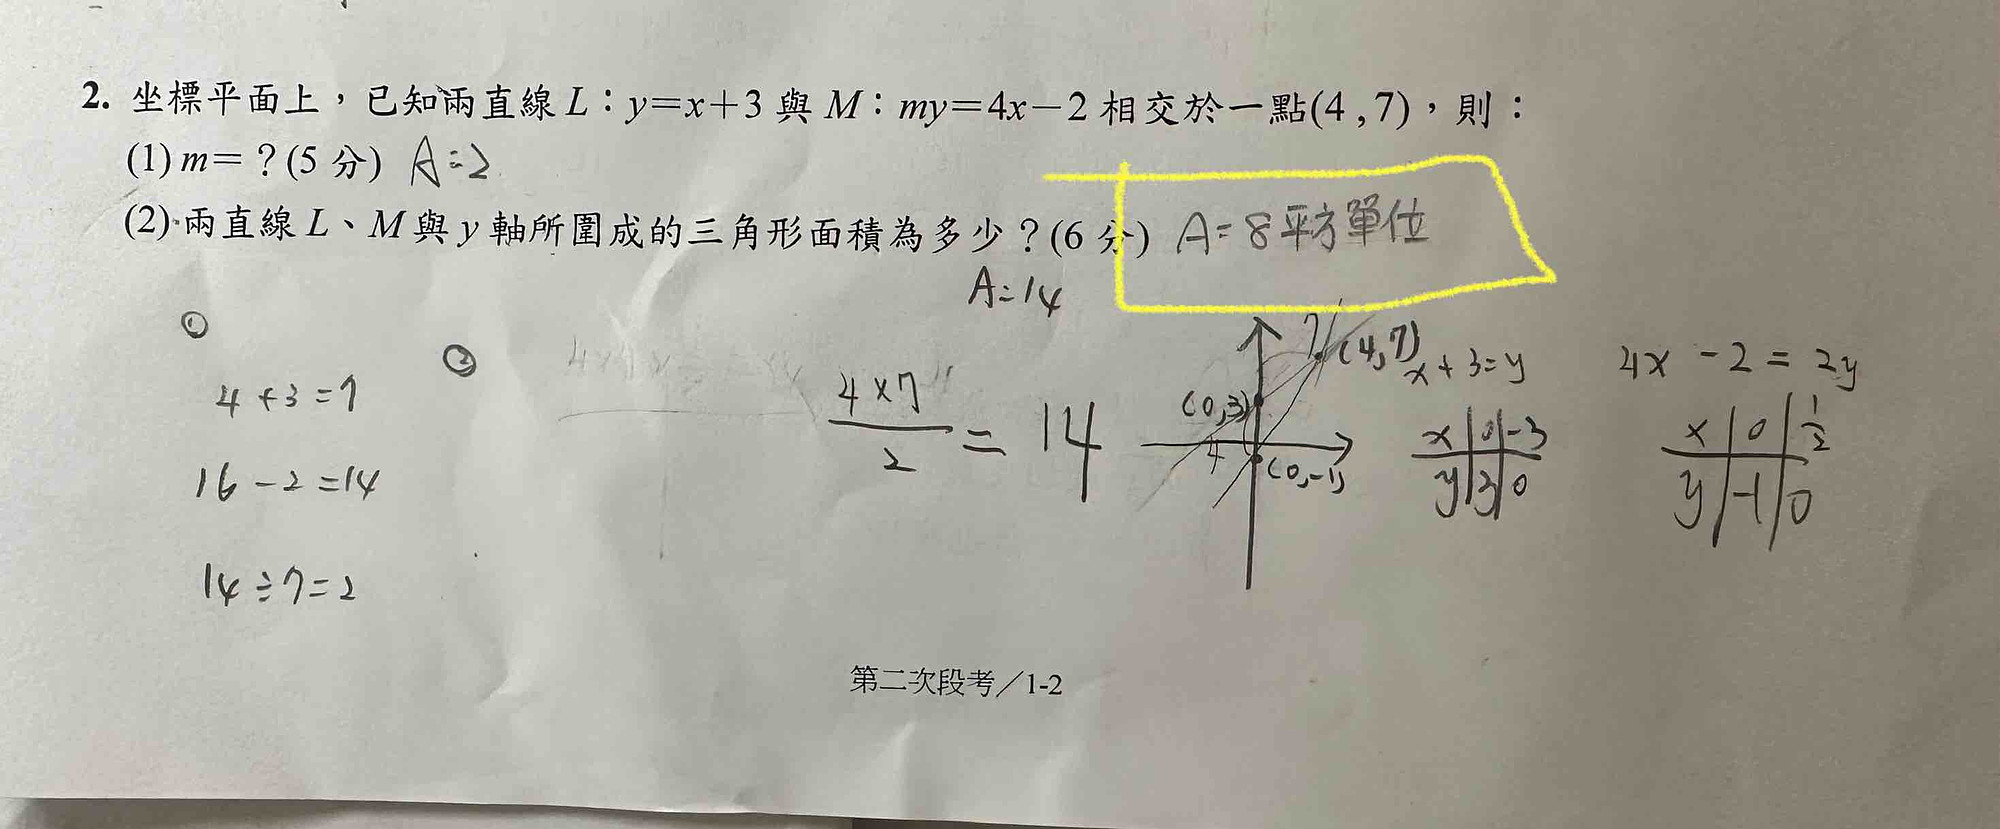 2. 坐標平面上，已知兩直線 L：y＝x＋3 與 M：my＝4x－2 相交於一點(4 , 7)，則：
(1) m＝？(5 分) A=2
(2) 兩直線 L、M 與 y 軸所圍成的三角形面積為多少？(6 分) A=8平方單位
A=14
①
4+3=7
16-2=14
14÷7=2
②
4×7
2
= 14
7
(4,7)
(0,3)
4
(0,-1)
x+3=y
x 0 -3
y 3 0
4x-2=2y
x 0 1/2
y -1 0
第二次段考／1-2